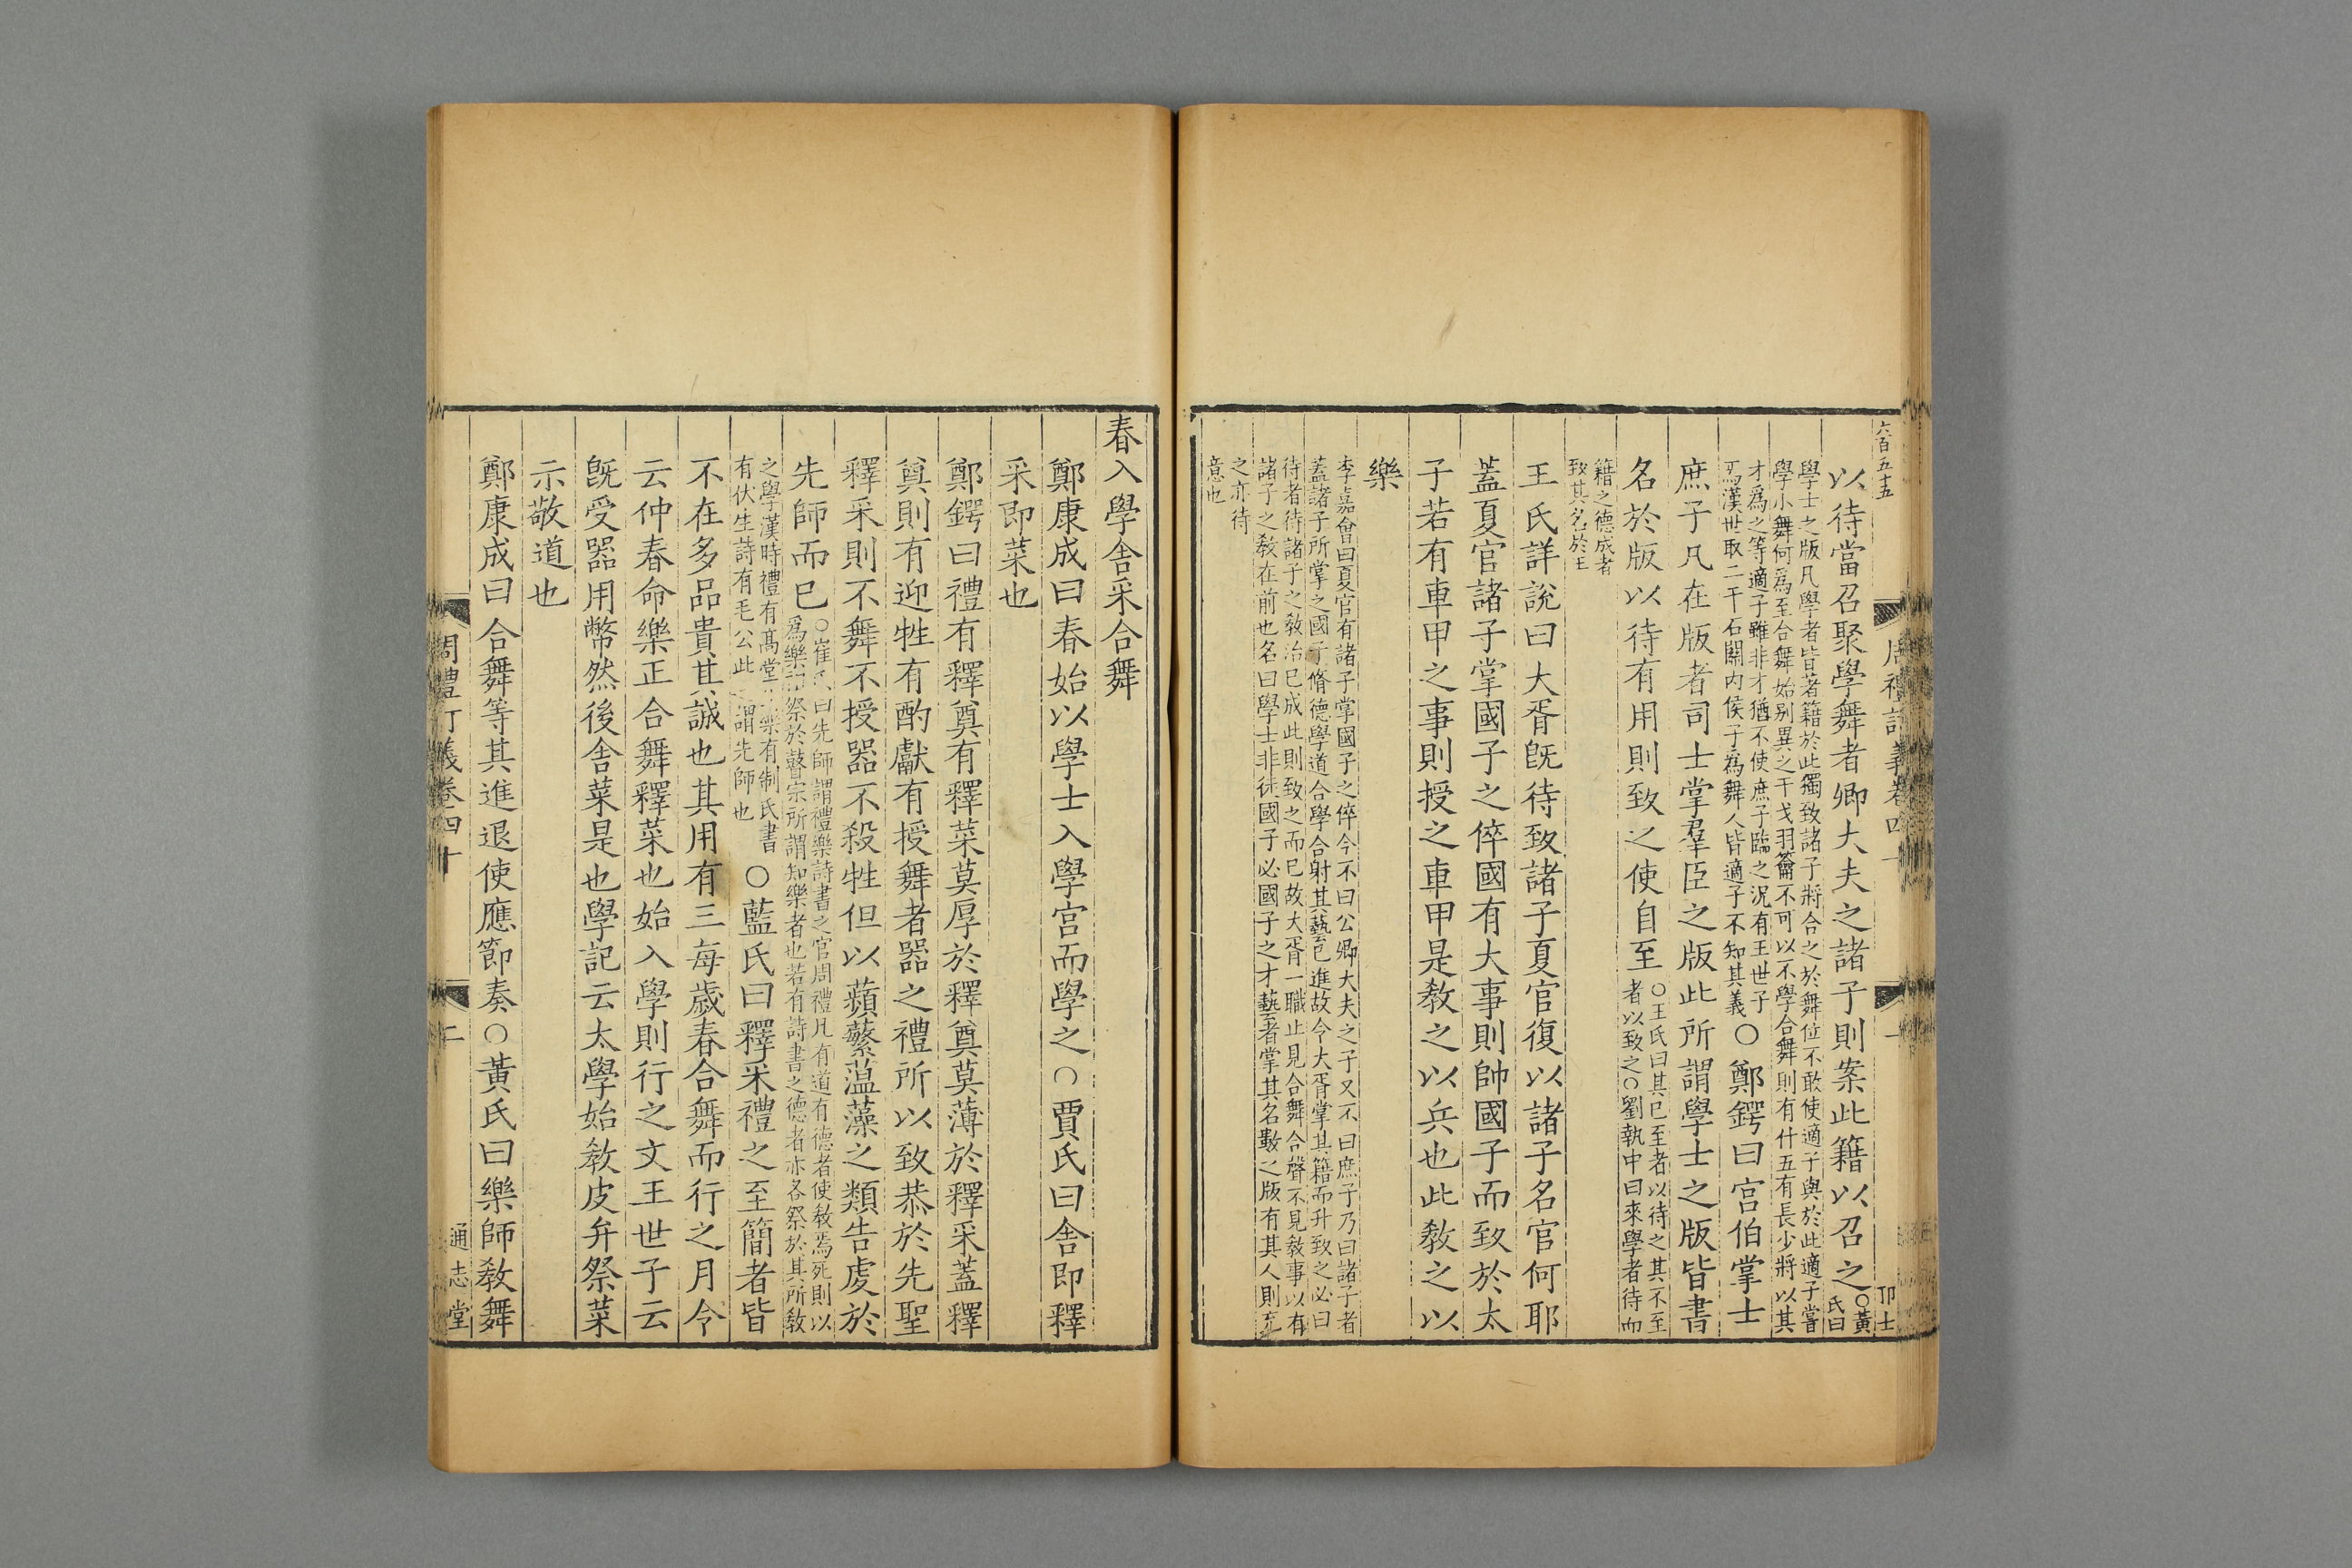 六百五十五
以待當召聚學舞者卿大夫之諸子則案此籍以召之○黃氏曰
學士之版凡學者皆著籍於此獨致諸子將合之於舞位不敢使適子與於此適子嘗
學小舞何爲至合舞始别異之干戈羽籥不可以不學合舞則有什五有長少將以其
才爲之等適子雖非才猶不使庶子臨之况有王世子
焉漢世取二千石關內侯子爲舞人皆適子不知其義○鄭鍔曰宮伯掌士
庶子凡在版者司士掌羣臣之版此所謂學士之版皆書
名於版以待有用則致之使自至○王氏曰其已至者以待之其不至
者以致之○劉執中曰來學者待而
籍之德成者
致其名於王
王氏詳說曰大胥旣待致諸子夏官復以諸子名官何耶
蓋夏官諸子掌國子之倅國有大事則帥國子而致於太
子若有車甲之事則授之車甲是敎之以兵也此敎之以
樂
李嘉會曰夏官有諸子掌國子之倅今不曰公卿大夫之子又不曰庶子乃曰諸子者
蓋諸子所掌之國子脩德學道合學合射其藝已進故今大胥掌其籍而升致之必曰
待者待諸子之敎治已成此則致之而已故大胥一職止見合舞合聲不見敎事以有
諸子之敎在前也名曰學士非徒國子必國子之才藝者掌其名數之版有其人則
之亦待
意也
周禮訂義卷四十
一
卭士
春入學舍采合舞
鄭康成曰春始以學士入學宮而學之○賈氏曰舍即釋
采即菜也
鄭鍔曰禮有釋奠有釋菜莫厚於釋奠莫薄於釋采蓋釋
奠則有迎牲有酌獻有授舞者器之禮所以致恭於先聖
釋采則不舞不授器不殺牲但以蘋蘩薀藻之類告虔於
先師而已○崔氏曰先師謂禮樂詩書之官周禮凡有道有德者使敎焉死則以
爲樂祖祭於瞽宗所謂知樂者也若有詩書之德者亦各祭於其所敎
之學漢時禮有髙堂生樂有制氏書
有伏生詩有毛公此之謂先師也○藍氏曰釋采禮之至簡者皆
不在多品貴其誠也其用有三每歲春合舞而行之月令
云仲春命樂正合舞釋菜也始入學則行之文王世子云
旣受器用幣然後舍菜是也學記云太學始敎皮弁祭菜
示敬道也
鄭康成曰合舞等其進退使應節奏○黃氏曰樂師敎舞
周禮訂義卷四十
二
通志堂